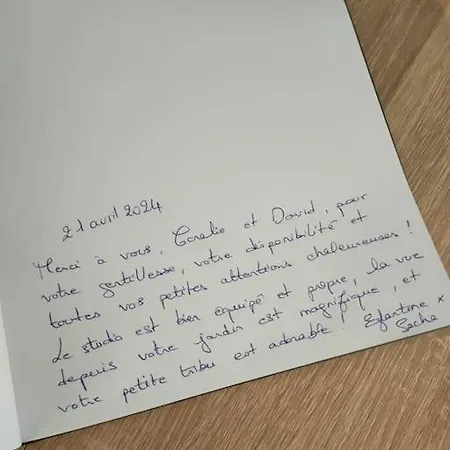 21 avril 2024
Merci à vous, Coralie et David, pour
votre gentillesse, votre disponibilité et
toutes vos petites attentions chaleureuses !
Le studio est bien équipé et propre, la vue
depuis votre jardin est magnifique, et
votre petite tribu est adorable ! Eglantine x
Sacha